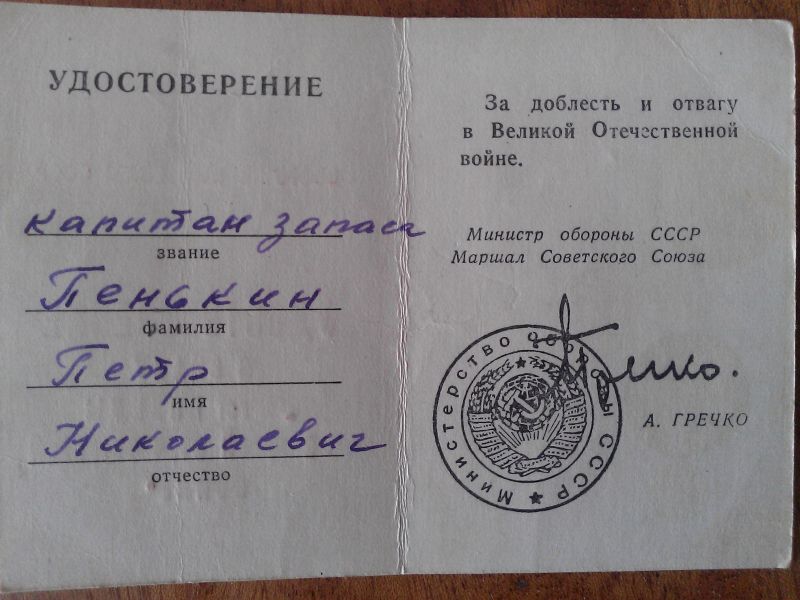 УДОСТОВЕРЕНИЕ
капитан запаса
звание
Пенькин
фамилия
Петр
имя
Николаевич
отчество
За доблесть и отвагу
в Великой Отечественной
войне.
Министр обороны СССР
Маршал Советского Союза
Министерство обороны СССР
Гречко.
А. ГРЕЧКО